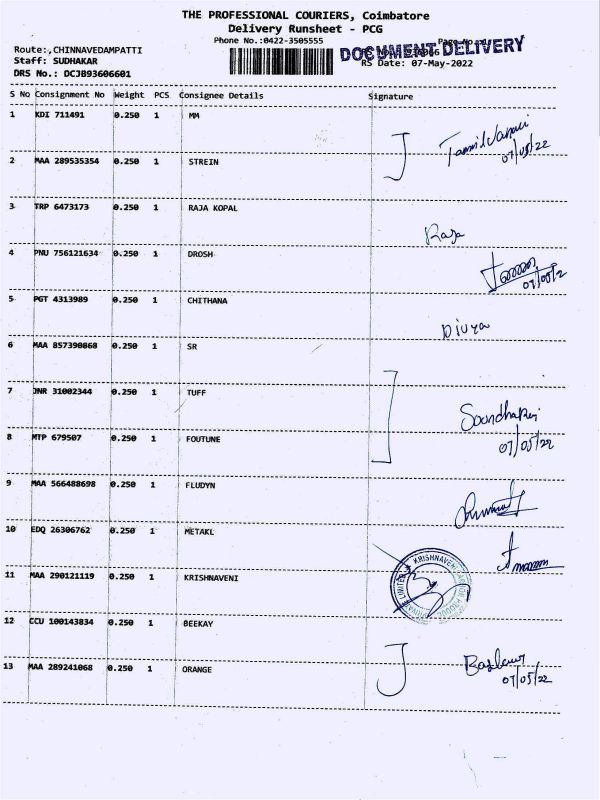 THE PROFESSIONAL COURIERS, Coimbatore
Delivery Runsheet - PCG
Phone No.:0422-3505555
Route:,CHINNAVEDAMPATTI
DOCUMENT DELIVERY
Staff: SUDHAKAR
RS Date: 07-May-2022
DRS No.: DCJB93606601
S No Consignment No Weight PCS Consignee Details Signature
1 KDI 711491 0.250 1 MM
07/05/22
2 MAA 289535354 0.250 1 STREIN
3 TRP 6473173 0.250 1 RAJA KOPAL
Raja
4 PNU 756121634 0.250 1 DROSH
5 PGT 4313989 0.250 1 CHITHANA
Divya
6 MAA 857390868 0.250 1 SR
7 JNR 31002344 0.250 1 TUFF
8 MTP 679507 0.250 1 FOUTUNE
07/05/22
9 MAA 566488698 0.250 1 FLUDYN
10 EDQ 26306762 0.250 1 METAKL
KRISHNAVENI
11 MAA 290121119 0.250 1 KRISHNAVENI
12 CCU 100143834 0.250 1 BEEKAY
13 MAA 289241068 0.250 1 ORANGE
07/05/22